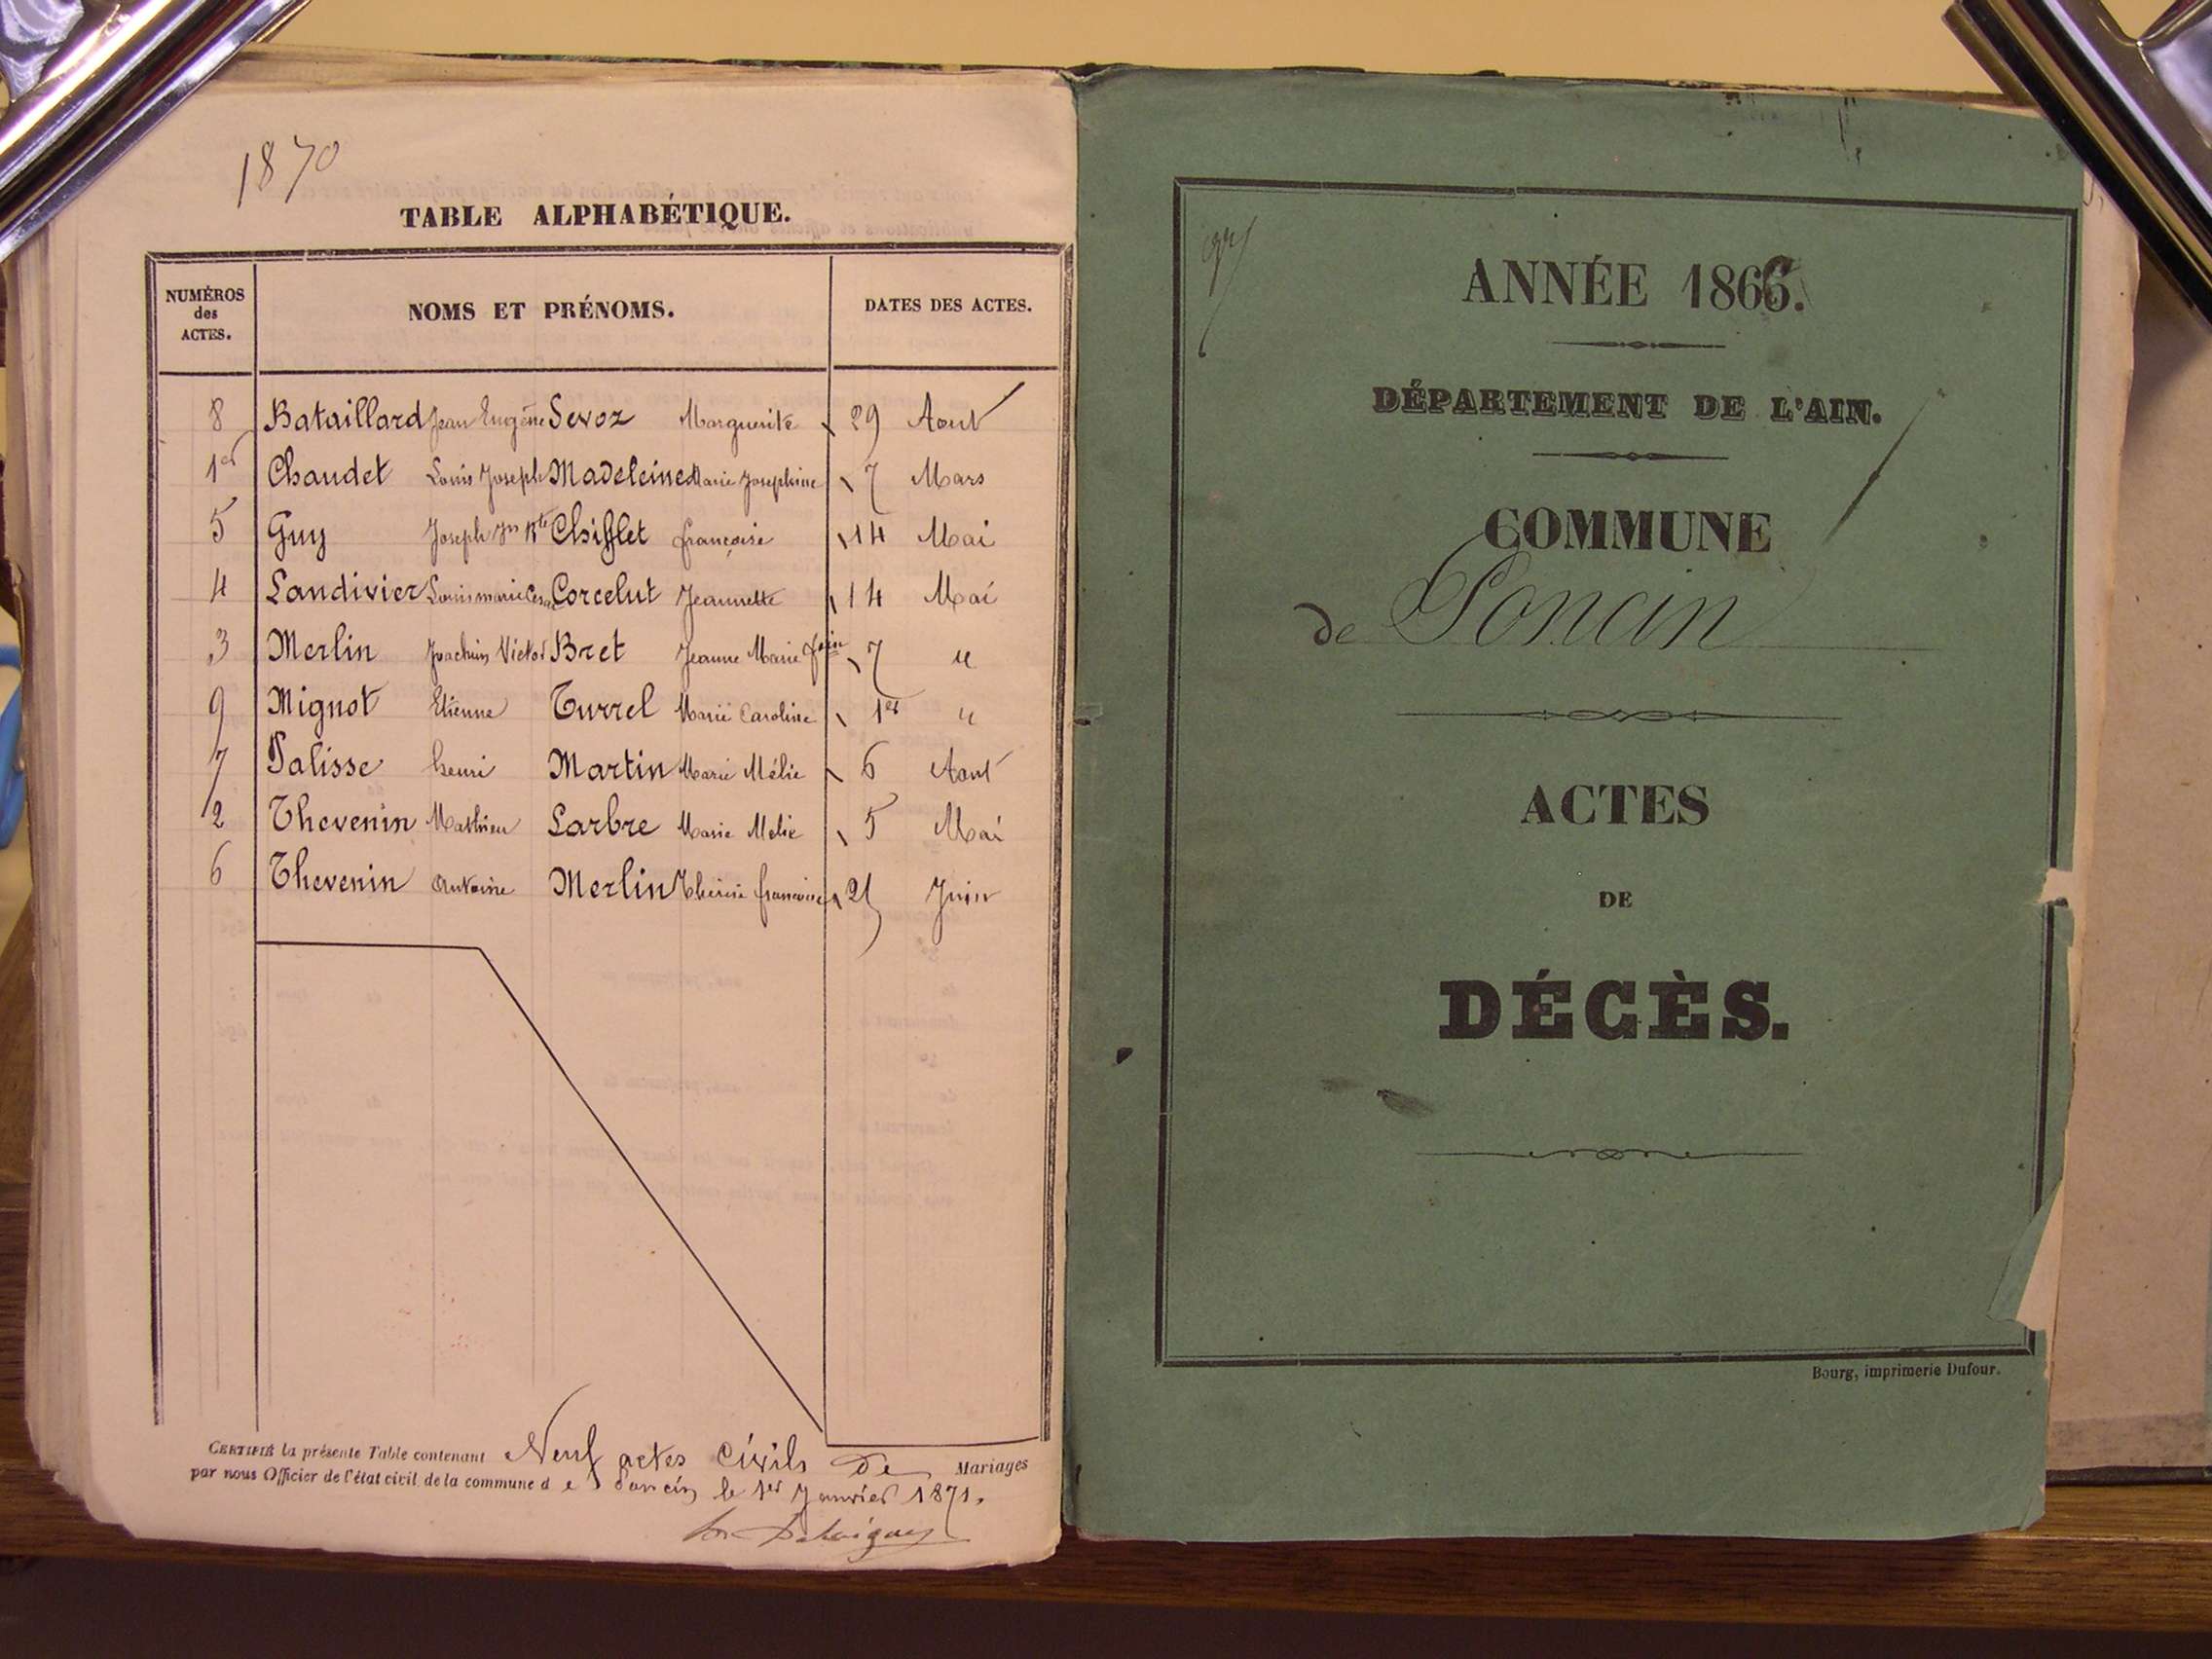 1870
TABLE ALPHABÉTIQUE.
NUMÉROS des ACTES.
NOMS ET PRÉNOMS.
DATES DES ACTES.
8 Bataillard Jean Eugène Sevoz Marguerite 29 Aout
1er Chaudet Louis Joseph Madeleine Marie Josephine 7 Mars
5 Guy Joseph Jn Bte Chifflet françoise 14 Mai
4 Landivier Louis marie Corcelut Jeannette 14 Mai
3 Merlin Joachim Victor Bret Jeanne Marie 7 "
9 Mignot Etienne Turrel Marie Caroline 1er "
7 Palisse henri Martin Marie Mélie 6 Aout
2 Thevenin Mathieu Larbre Marie Melie 5 Mai
6 Thevenin Antoine Merlin Thérèse françoise 25 Juin
CERTIFIÉ la présente Table contenant Neuf actes civils de Mariages
par nous Officier de l'état civil de la commune de Poncin le 1er Janvier 1871.
ANNÉE 1866.
DÉPARTEMENT DE L'AIN.
COMMUNE
de Poncin
ACTES
DE
DÉCÈS.
Bourg, imprimerie Dufour.